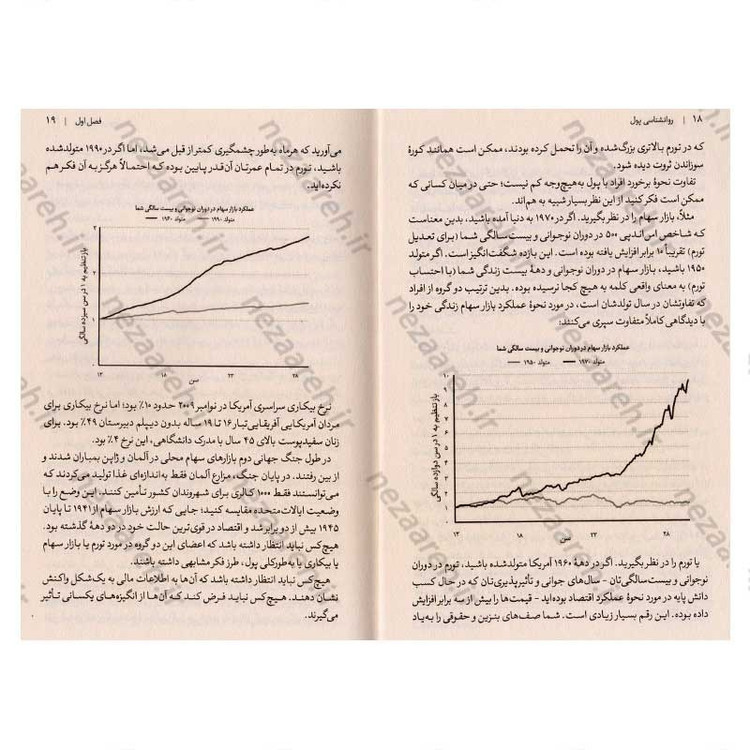 ۱۸ | روانشناسی پول
که در تورم بالاتری بزرگ‌شده و آن را تحمل کرده بودند، ممکن است همانند کورهٔ
سوزاندن ثروت دیده شود.
تفاوت نحوهٔ برخورد افراد با پول به‌هیچ‌وجه کم نیست؛ حتی در میان کسانی که
ممکن است فکر کنید از این نظر بسیار شبیه به هم‌اند.
مثلاً، بازار سهام را در نظر بگیرید. اگر در ۱۹۷۰ به دنیا آمده باشید، بدین معناست
که شاخص اس‌اندپی ۵۰۰ در دوران نوجوانی و بیست سالگی شما (برای تعدیل
تورم) تقریباً ۱۰ برابر افزایش یافته بوده است. این بازده شگفت‌انگیز است. اگر متولد
۱۹۵۰ باشید، بازار سهام در دوران نوجوانی و دههٔ بیست زندگی شما (با احتساب
تورم) به معنای واقعی کلمه به هیچ کجا نرسیده بوده. بدین ترتیب دو گروه از افراد
که تفاوتشان در سال تولدشان است، در مورد نحوهٔ عملکرد بازار سهام زندگی خود را
با دیدگاهی کاملاً متفاوت سپری می‌کنند:
عملکرد بازار سهام در دوران نوجوانی و بیست سالگی شما
متولد ۱۹۷۰ متولد ۱۹۵۰
بازتنظیم به ۱ در سن دوازده سالگی
۱۳ ۱۸ ۲۳ ۲۸
سن
یا تورم را در نظر بگیرید. اگر در دههٔ ۱۹۶۰ آمریکا متولدشده باشید، تورم در دوران
نوجوانی و بیست‌سالگی‌تان – سال‌های جوانی و تأثیرپذیری‌تان که در حال کسب
دانش پایه در مورد نحوهٔ عملکرد اقتصاد بوده‌اید – قیمت‌ها را بیش از سه برابر افزایش
داده بوده. این رقم بسیار زیادی است. شما صف‌های بنزین و حقوقی را به‌یاد
فصل اول | ۱۹
می‌آورید که هرماه به‌طور چشمگیری کمتر از قبل می‌شد، اما اگر در ۱۹۹۰ متولدشده
باشید، تورم در تمام عمرتان آن‌قدر پایین بوده که احتمالاً هرگز به آن فکر هم
نکرده‌اید.
عملکرد بازار سهام در دوران نوجوانی و بیست سالگی شما
متولد ۱۹۹۰ متولد ۱۹۶۰
بازتنظیم به ۱ در سن سیزده سالگی
۱۳ ۱۸ ۲۳ ۲۸
سن
نرخ بیکاری سراسری آمریکا در نوامبر ۲۰۰۹ حدود ۱۰٪ بود؛ اما نرخ بیکاری برای
مردان آمریکایی آفریقایی‌تبار ۱۶ تا ۱۹ ساله بدون دیپلم دبیرستان ۴۹٪ بود. برای
زنان سفیدپوست بالای ۴۵ سال با مدرک دانشگاهی، این نرخ ۴٪ بود.
در طول جنگ جهانی دوم بازارهای سهام محلی در آلمان و ژاپن بمباران شدند و
از بین رفتند. در پایان جنگ، مزارع آلمان فقط به‌اندازه‌ای غذا تولید می‌کردند که
می‌توانستند فقط ۱۰۰۰ کالری برای شهروندان کشور تأمین کنند. این وضع را با
وضعیت ایالات‌متحده مقایسه کنید؛ جایی که ارزش بازار سهام از ۱۹۴۱ تا پایان
۱۹۴۵ بیش از دو برابر شد و اقتصاد در قوی‌ترین حالت خود در دو دههٔ گذشته بود.
هیچ‌کس نباید انتظار داشته باشد که اعضای این دو گروه در مورد تورم یا بازار سهام
یا بیکاری یا به‌طورکلی پول، طرز فکر مشابهی داشته باشند.
هیچ‌کس نباید انتظار داشته باشد که آن‌ها به اطلاعات مالی به یک‌شکل واکنش
نشان دهند. هیچ‌کس نباید فرض کند که آن‌ها از انگیزه‌های یکسانی تأثیر
می‌گیرند.
nezaareh.ir